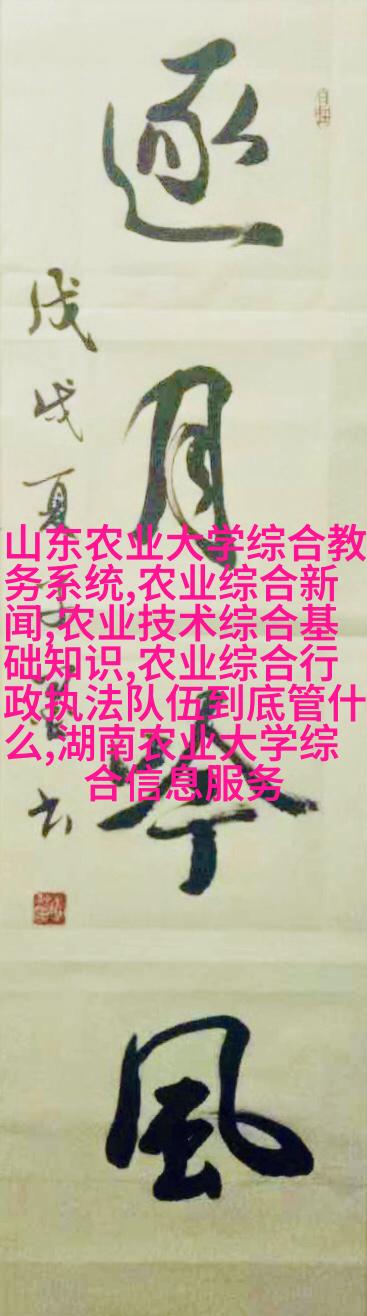 逐
月
風
戊戌夏
书
山东农业大学综合教
务系统,农业综合新
闻,农业技术综合基
础知识,农业综合行
政执法队伍到底管什
么,湖南农业大学综
合信息服务